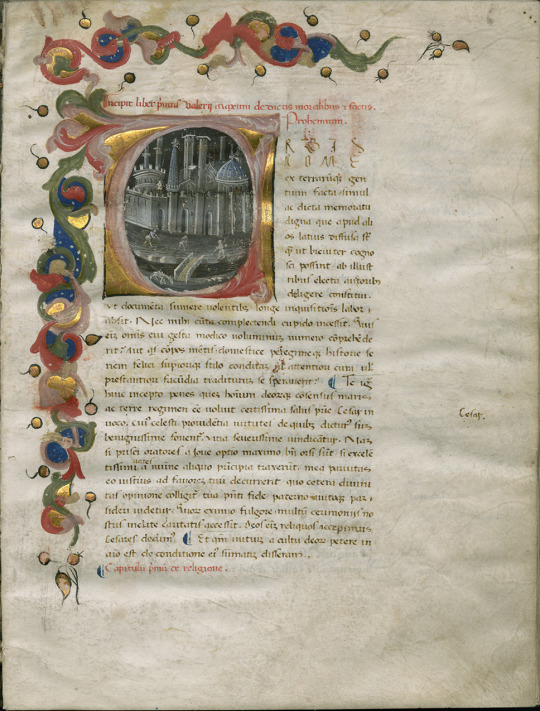 Incipit liber primus Valerij maximi de dictis moralibus et factis.
Prohemium.
RBIS
ROME
ex terrarūqȝ gen
tium facta simul
ac dicta memoratu
digna que apud ali
os latius diffusa st̄
qȝ ut breuiter cogno
sci possint ab illust
ribus electa auctorib
deligere constitui.
ut documēta sumere volentibȝ longe inquisitiois labor
absit. Nec mihi cūta complectendi cupido incessit. Quis
eī omīs eui gesta modico voluminū numero cōprehēde
rit. Aut qs cōpos mētis domestice peregrineqȝ historie se
riem felici superioꝝ stilo conditā ul attentiori cura ul
prestantiori facūdia traditurū se sperauerit. ¶ Te igr̄
huic incepto penes quē hoīum deoꝝqȝ cōsensus maris
ac terre regimen eē voluit certissima salus p̄rie Cesar in
uoco. cuiȝ celesti prouidētia uirtutes de quibȝ dicturȝ sū
benignissime fouent̄. vitia seuerissime uindicātur. Naȝ
si prisci oratores a Ioue optīo maximo bn̄ orsi sūt si excelē
vates
tissimi a numine aliquo principia traxerūt. mea paruitas
eo iustius ad fauorē tuū decurrerit. quo cetera diuini
tas opinione colligit̄ tua p̄nti fide paterno auitoqȝ pari
sideri uidetur. Quoꝝ eximio fulgore multū cerimonijs no
stris inclite claritatis accessit. Deos eī reliquos accepimus
Cesares dedimȝ. ¶ Et qm̄ initiū a cultu deoꝝ petere in
aīo est de conditione eiȝ sūmatī disseram.
¶ Capitulū prīmū de religione.
Cesar.